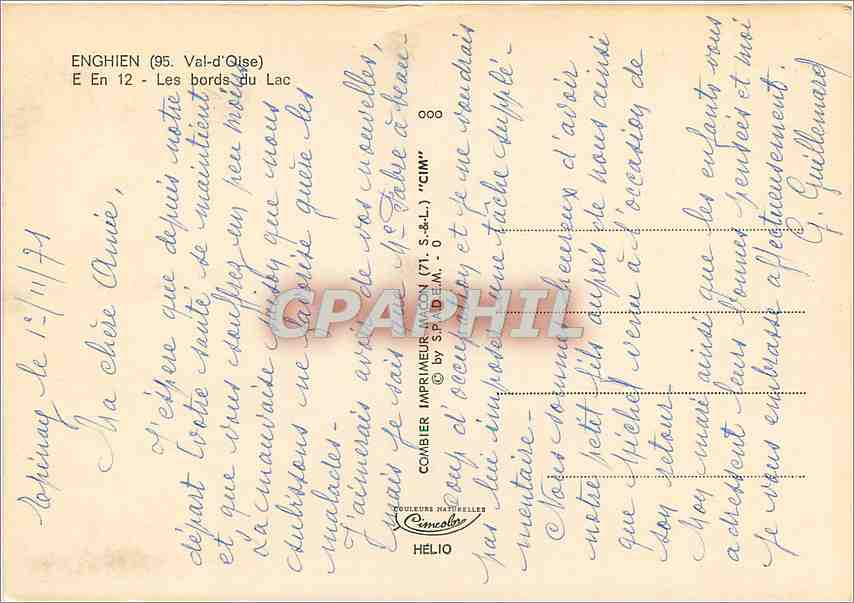 ENGHIEN (95. Val-d'Oise)
E En 12 - Les bords du Lac
Epinay le 1e/11/71
Ma chère Aimée,
J'espère que depuis notre
départ votre santé se maintient
et que vous souffrez un peu moins
La mauvaise saison que nous
subissons ne favorise guère les
malades-
J'aimerais avoir de vos nouvelles,
mais je sais que Me Fabre a beau-
coup d'occupation et je ne voudrais
pas lui imposer une tâche supplé-
mentaire-
Nous sommes heureux d'avoir
notre petit fils auprès de nous ainsi
que Michel venu à l'occasion de
son retour-
Mon mari ainsi que les enfants vous
adressent leurs bonnes pensées et moi
je vous embrasse affectueusement.
G. Guillemard
COMBIER IMPRIMEUR MACON (71. S.-&-L.) "CIM"
© by S.P.A.D.E.M. - 0
000
COULEURS NATURELLES
Cimcolor
HÉLIO
CPAPHIL